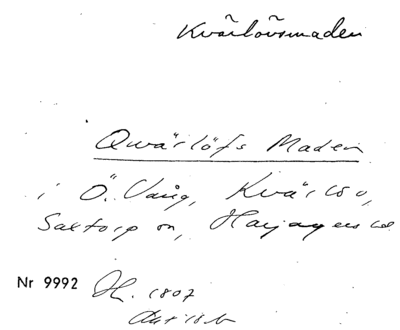 Kvärlövsmaden
Qwärlöfs Maden
i Ö. Vång, Kvärlöv,
Saxtorp sn, Harjagers hd
Nr 9992 H. 1807
Akt 18 b